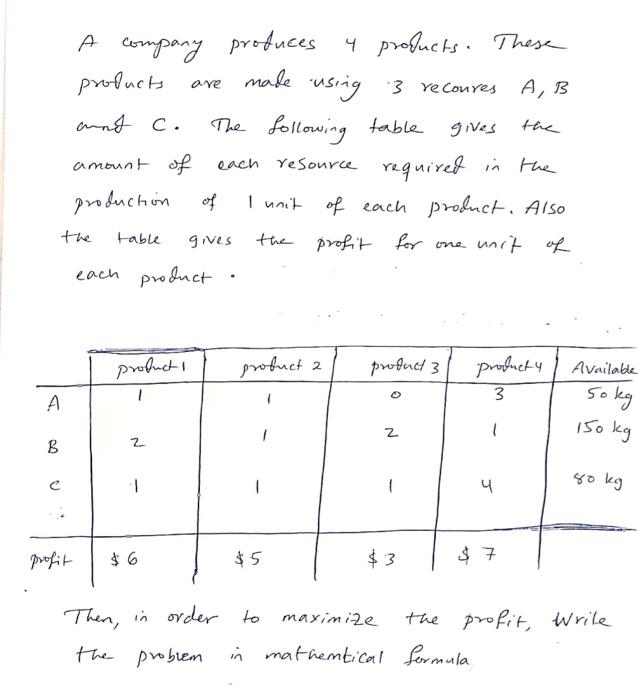 A company produces 4 products. These
products are made using 3 recoures A, B
annd C. The following table gives the
amount of each resource required in the
production of 1 unit of each product. Also
the table gives the profit for one unit of
each product.
product 1 product 2 product 3 product 4 Available
A 1 1 0 3 50 kg
B 2 1 2 1 150 kg
C 1 1 1 4 80 kg
profit $6 $5 $3 $7
Then, in order to maximize the profit, Write
the problem in mathemtical formula